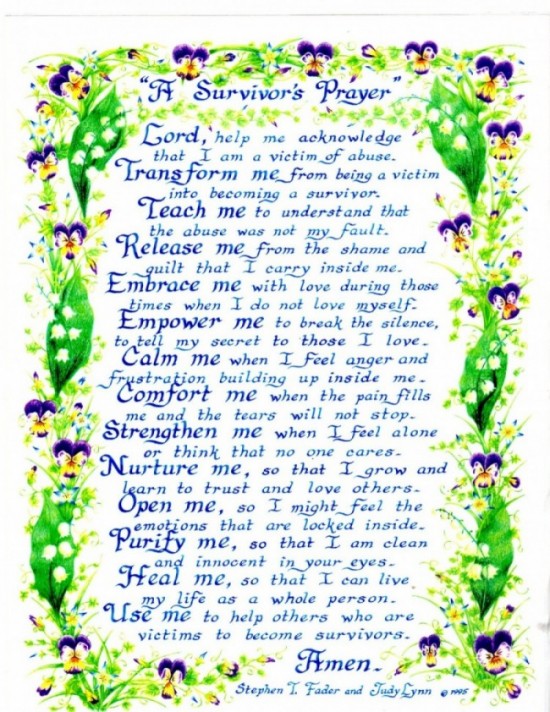 "A Survivor's Prayer"
Lord, help me acknowledge
that I am a victim of abuse.
Transform me from being a victim
into becoming a survivor.
Teach me to understand that
the abuse was not my fault.
Release me from the shame and
guilt that I carry inside me.
Embrace me with love during those
times when I do not love myself.
Empower me to break the silence,
to tell my secret to those I love.
Calm me when I feel anger and
frustration building up inside me.
Comfort me when the pain fills
me and the tears will not stop.
Strengthen me when I feel alone
or think that no one cares.
Nurture me, so that I grow and
learn to trust and love others.
Open me, so I might feel the
emotions that are locked inside.
Purify me, so that I am clean
and innocent in your eyes.
Heal me, so that I can live
my life as a whole person.
Use me to help others who are
victims to become survivors.
Amen.
Stephen T. Fader and Judy Lynn © 1995